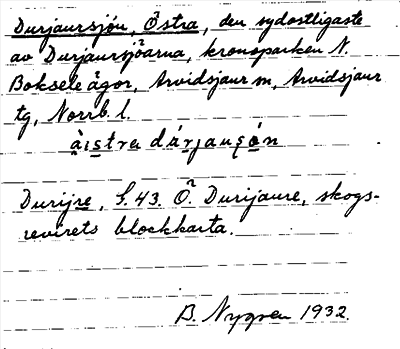 Durjaursjön, Östra, den sydostligaste
av Durjaursjöarna, kronoparken N.
Boksele ägor, Arvidsjaur sn, Arvidsjaur
tg, Norrb. l.
Durijre, S. 43. Ö. Durijaure, skogs-
revirets blockkarta.
B. Nygren 1932